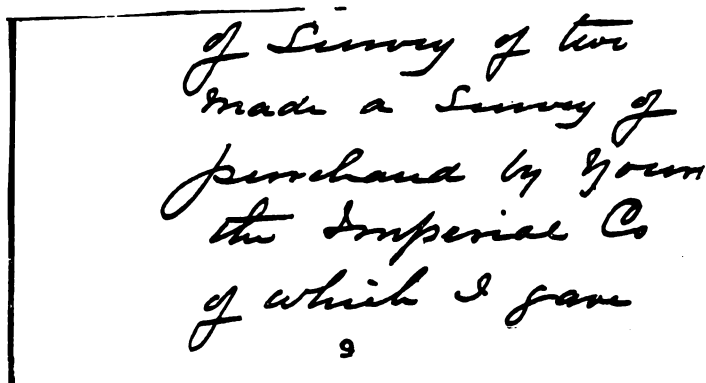 of Survey of two
made a Survey of
purchased by your
the Imperial Co
of which I gave
9